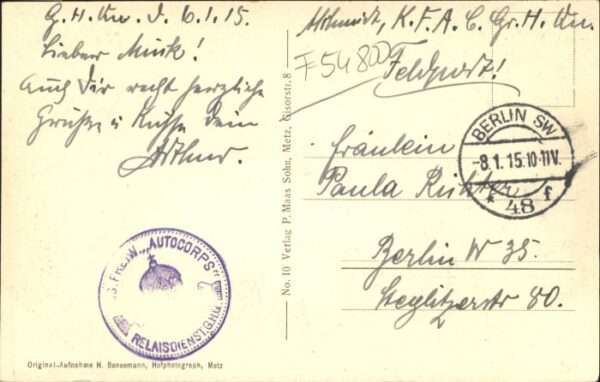 6.1.15.
Lieber Muck!
Auch Dir recht herzliche
Grüße u Küsse Dein
Arthur.
K.F.A.C. Gr. H. Qu.
F54800
Feldpost!
Fräulein
Paula Richter
Berlin W 35.
Steglitzerstr 80.
BERLIN SW
-8.1.15.10-11V.
* 48 f
No. 10 Verlag P. Maas Sohn, Metz, Gisorstr. 8
FREIW. AUTOCORPS
RELAISDIENST G.H.Q.
Original-Aufnahme N. Bansemann, Hofphotograph, Metz